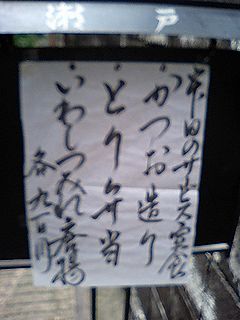 瀬戸
本日のサービス定食
・かつお造り
・とり弁当
・いわしつみれ唐揚
各 九一〇円